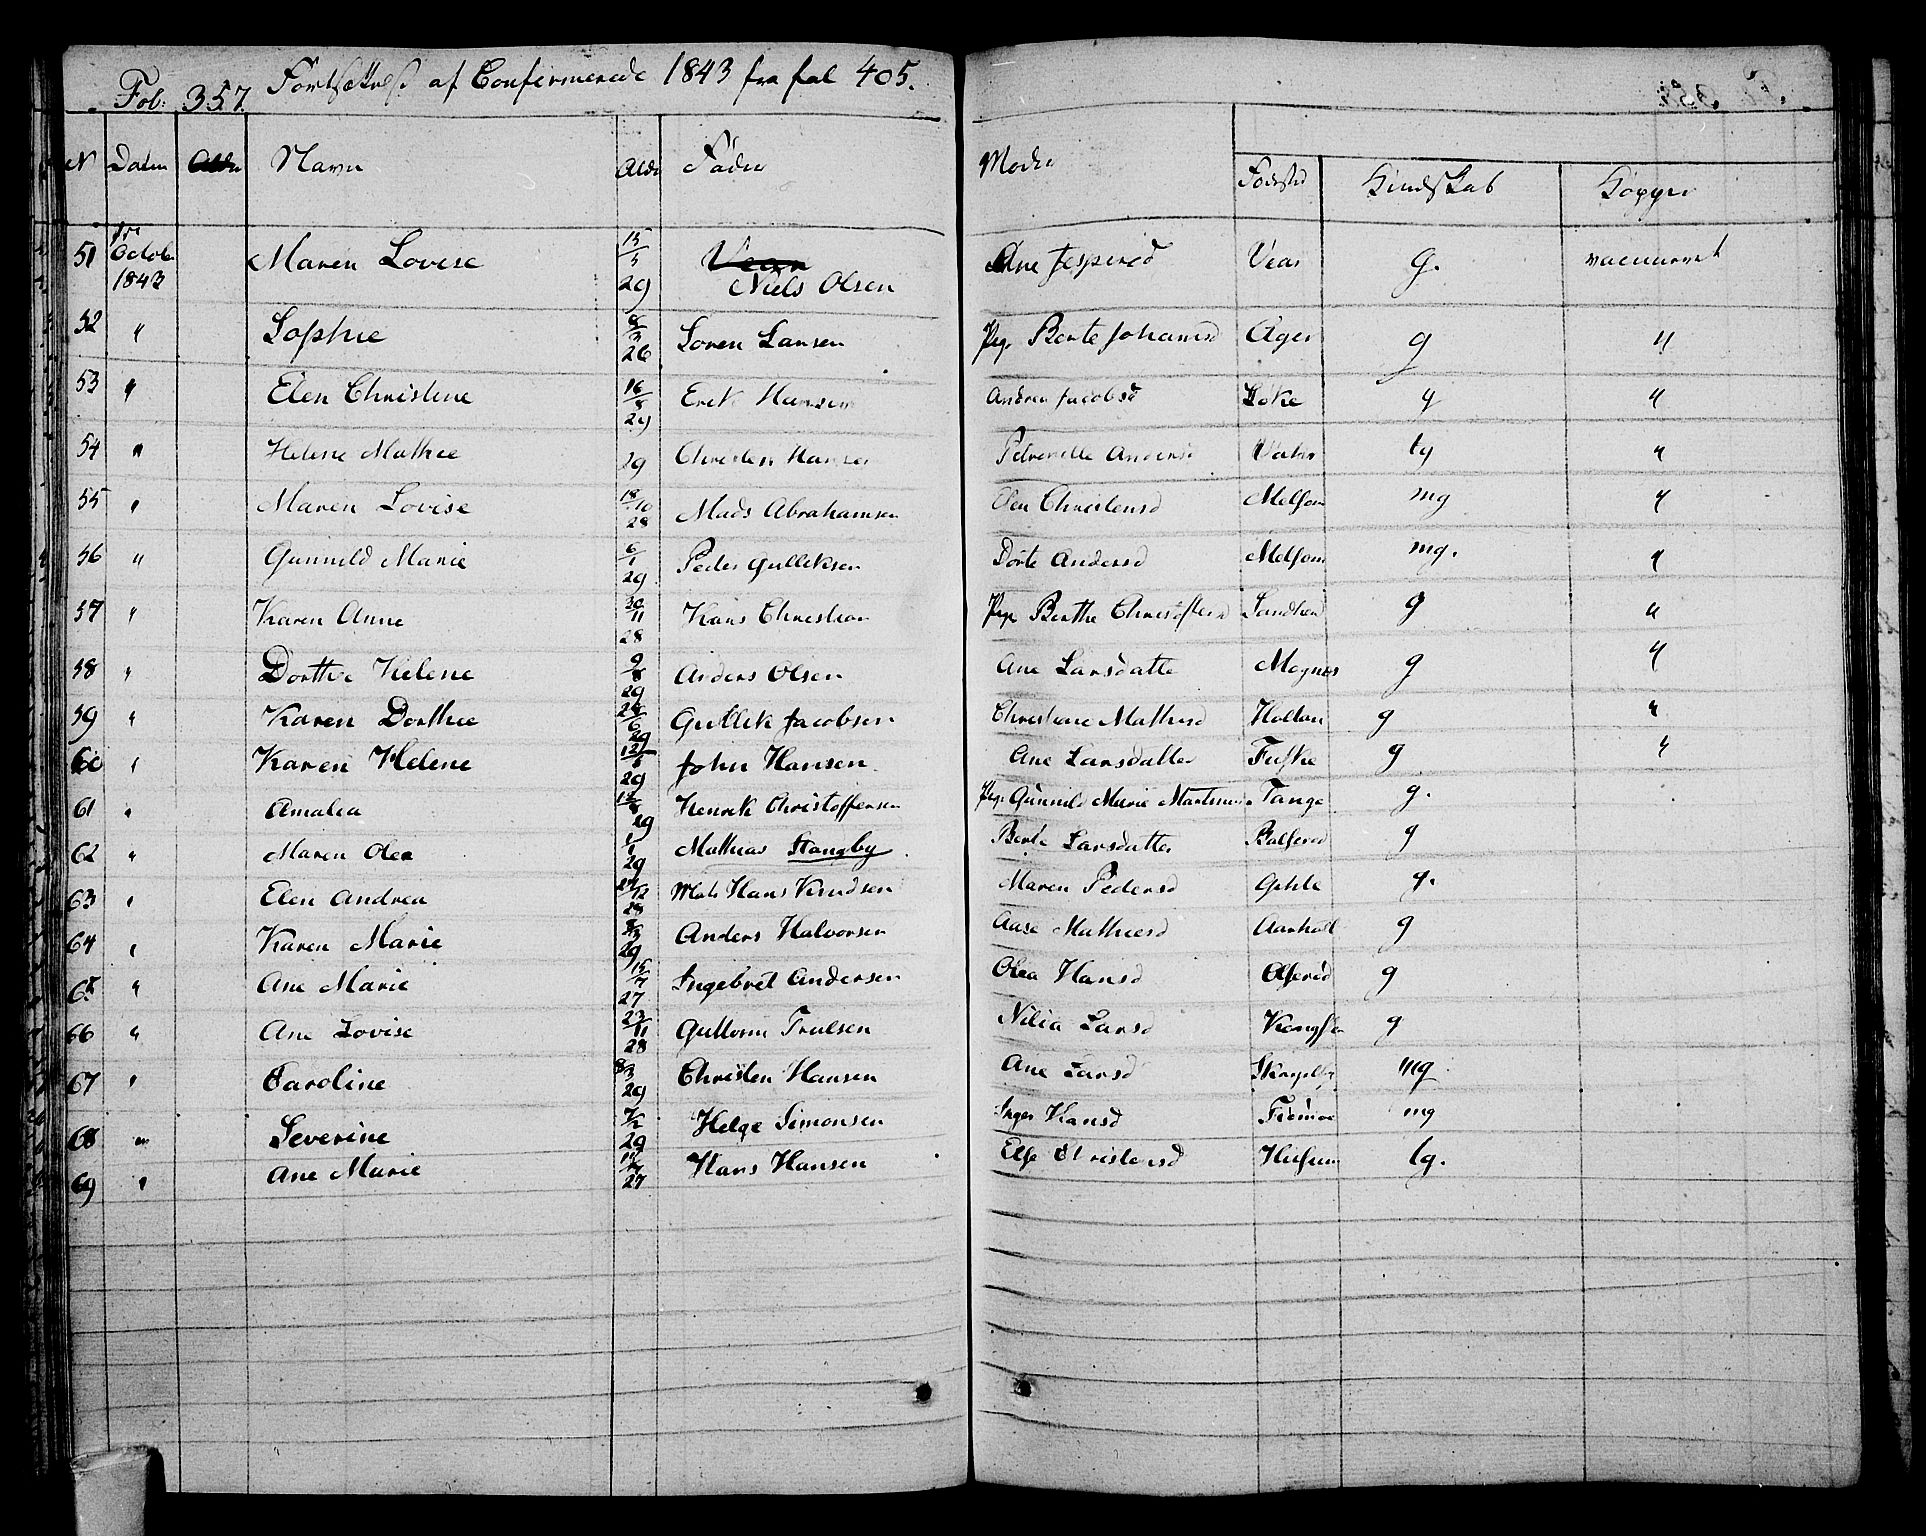 Fol: 357. Fortsættelse af Confirmerede 1843 fra fol 405.
N Datum Alder Navn Alder Fader Moder Fødested Kundskab Kopper
51 1ste Octob 1843 Maren Lovise 15/5 29 Vear Niels Olsen Ane Jespersd Vear g. vaccineret
52 " Sophie 8/3 26 Soren Larsen Pige Berte Johannesd Ager g "
53 " Elen Christine 16/8 29 Erik Hansen Andrea Jacobsd Løke g "
54 " Helene Mathee 29 Christen Hansen Petronelle Andersd tg "
55 " Maren Lovise 18/10 28 Mads Abrahamsen Christensd Melsom mg "
56 " Gunnild Marie 6/1 29 Peder Gulleksen Dorte Andersd Melsom mg. "
57 " Karen Anne 30/11 28 Hans Christian Pige Berthe g "
58 " Dorthe Helene 9/8 29 Anders Olsen Ane Larsdatte Mognes g "
59 " Karen Dorthee 6 29 Gullik Jacobsen Christiane Mathisd Holtan g "
60 " Karen Helene 29 John Hansen Ane Larsdatter g "
61 " Amalia 29 Henrik Christoffersen Pige Gunnild Marie Tange g.
62 " Maren Olea 1/1 29 Mathias Stangby Berte Larsdatter g
63 " Elen Andrea 12 28 Hans Knudsen Maren Pedersd Gohle g.
64 " Karen Marie 8/3 29 Anders Halvorsen Aase Mathiesd Aarholt g
65 " Ane Marie 15/7 27 Ingebret Andersen Olea Hansd g
66 " Ane Lovise 23/11 28 Guttorm Trulsen Nilia Larsd g
67 " Caroline 8/3 29 Christen Hansen Ane Larsd mg
68 " Severine 29 Helge Simonsen Inger Hansd mg
69 " Ane Marie 27 Hans Hansen Else Christensd tg.